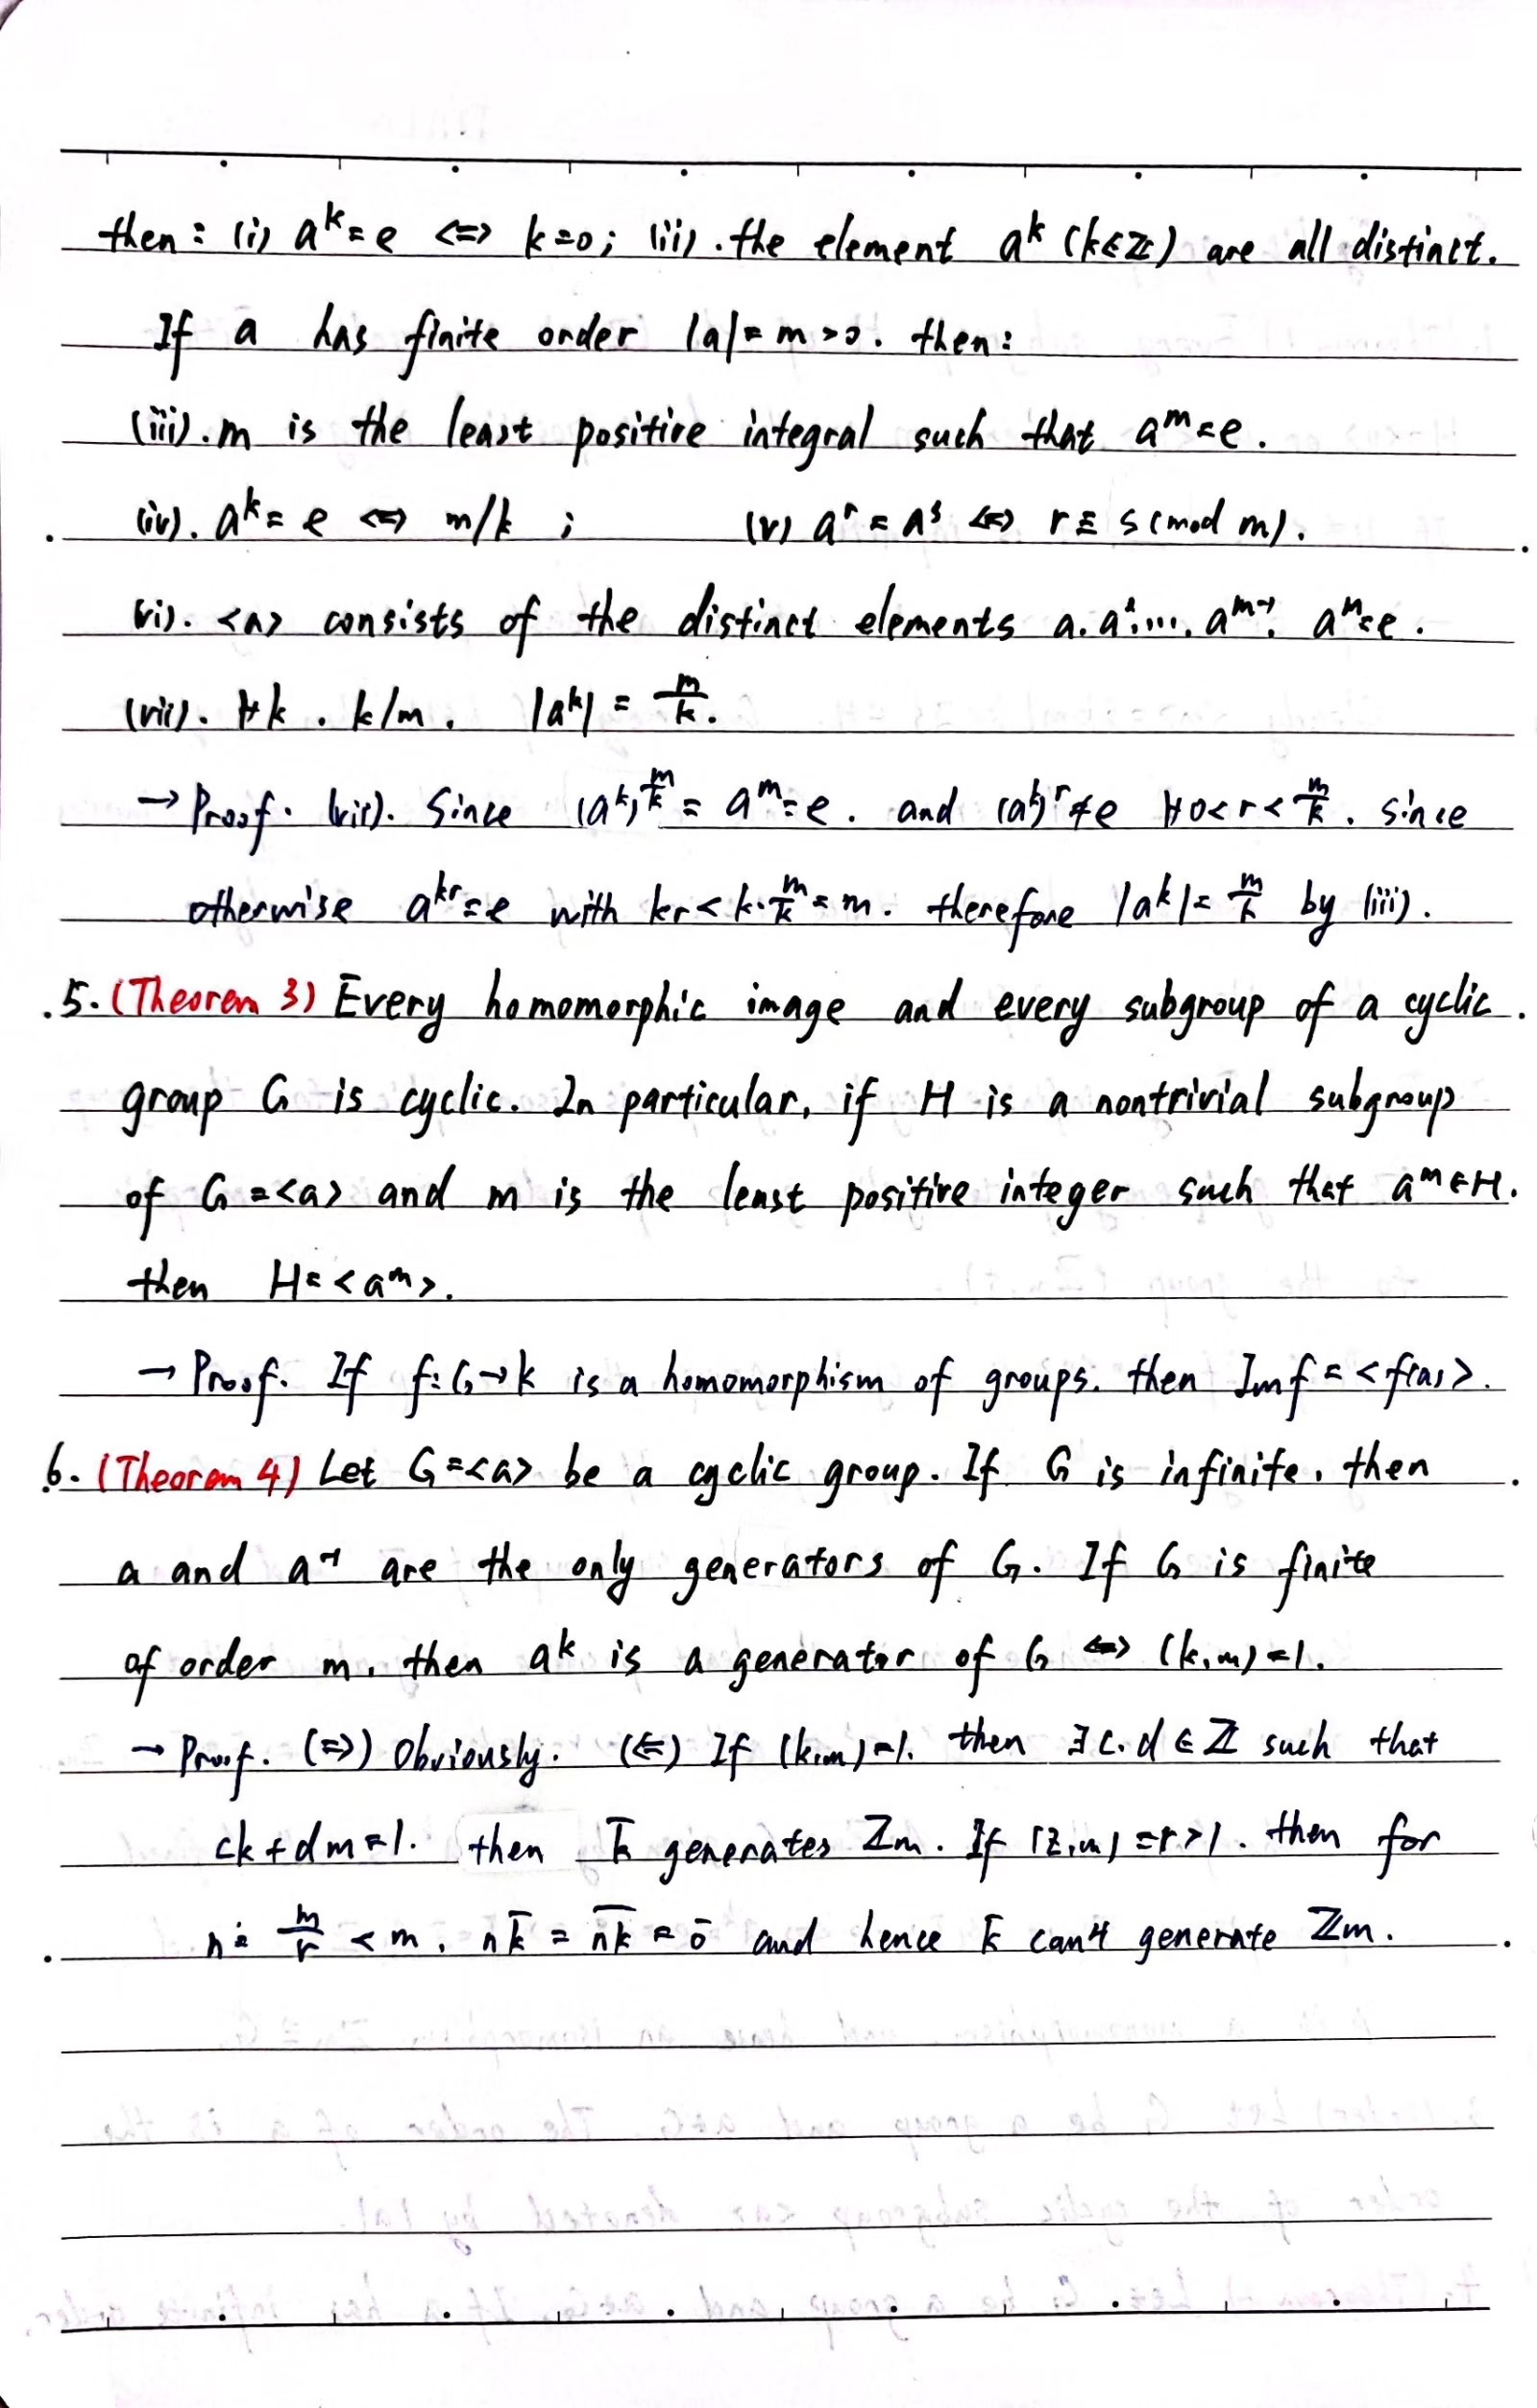 then: (i) a^k = e <=> k=0; (ii). the element a^k (k∈Z) are all distinct.
If a has finite order |a| = m >0. then:
(iii). m is the least positive integral such that a^m = e.
(iv). a^k = e <=> m/k ; (v) a^r = a^s <=> r ≡ s (mod m).
(vi). <a> consists of the distinct elements a. a^2. .... a^{m-1}. a^m = e.
(vii). ∀k . k/m . |a^k| = m/k.
→ Proof. (vii). Since (a^k)^{m/k} = a^m = e. and (a^k)^r ≠ e ∀ 0<r<m/k. since
otherwise a^{kr} = e with kr < k·m/k = m. therefore |a^k| = m/k by (iii).
5. (Theorem 3) Every homomorphic image and every subgroup of a cyclic
group G is cyclic. In particular, if H is a nontrivial subgroup
of G = <a> and m is the least positive integer such that a^m ∈ H.
then H = <a^m>.
→ Proof. If f: G→K is a homomorphism of groups. then Imf = <f(a)>.
6. (Theorem 4) Let G = <a> be a cyclic group. If G is infinite, then
a and a^{-1} are the only generators of G. If G is finite
of order m, then a^k is a generator of G <=> (k,m) = 1.
→ Proof. (=>) Obviously. (<=) If (k,m) = 1. then ∃ c.d ∈ Z such that
ck + dm = 1. then k̄ generates Zm. If (z,m) = r > 1. then for
n = m/r < m, nk̄ = \overline{nk} = 0̄ and hence k̄ can't generate Zm.